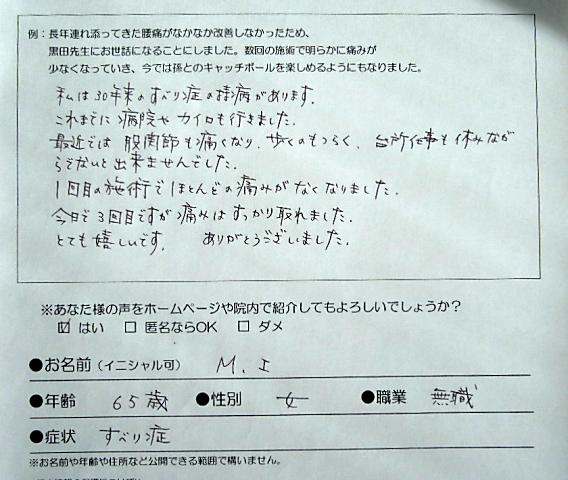 例：長年連れ添ってきた腰痛がなかなか改善しなかったため、
黒田先生にお世話になることにしました。数回の施術で明らかに痛みが
少なくなっていき、今では孫とのキャッチボールを楽しめるようにもなりました。
私は30年来のすべり症の持病があります。
これまでに病院やカイロも行きました。
最近では股関節も痛くなり、歩くのもつらく、台所仕事も休みなが
らでないと出来ませんでした。
1回目の施術でほとんどの痛みがなくなりました。
今日で3回目ですが痛みはすっかり取れました。
とても嬉しいです。 ありがとうございました。
※あなた様の声をホームページや院内で紹介してもよろしいでしょうか？
☑ はい □ 匿名ならOK □ ダメ
●お名前（イニシャル可） M.I
●年齢 65歳 ●性別 女 ●職業 無職
●症状 すべり症
※お名前や年齢や住所など公開できる範囲で構いません。